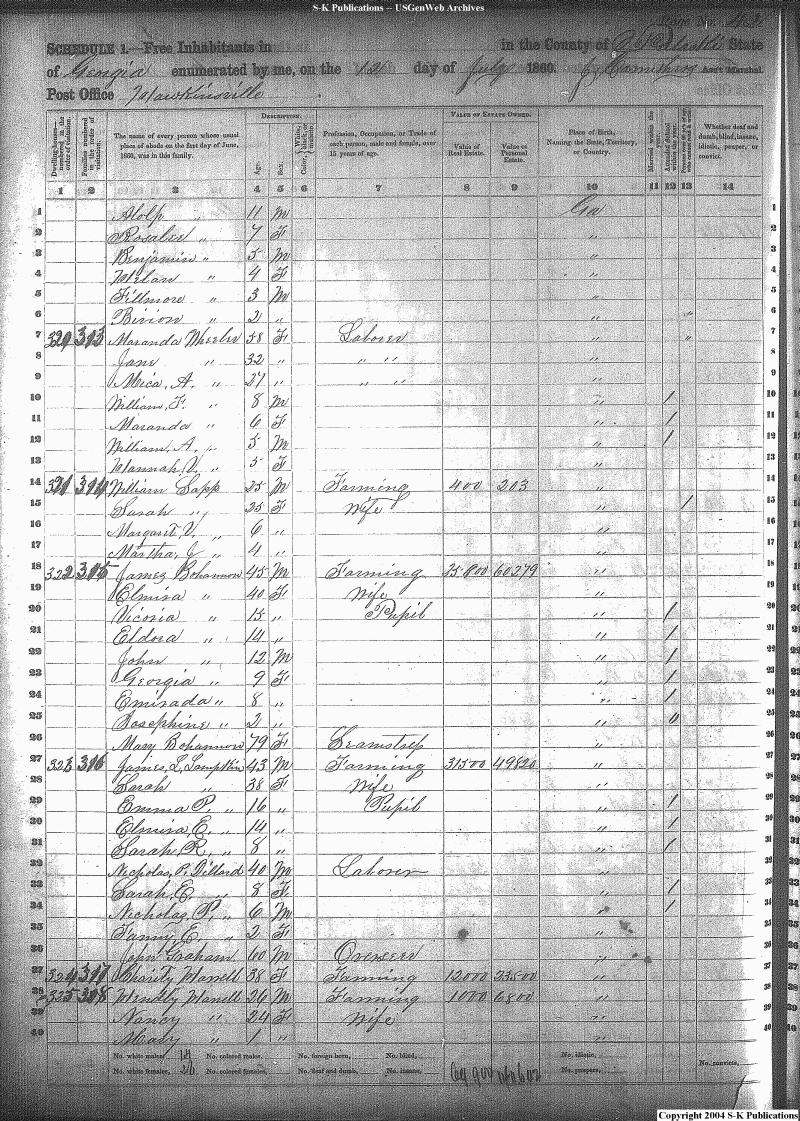 S-K Publications -- USGenWeb Archives
Page No. 42
SCHEDULE 1.—Free Inhabitants in in the County of Pulaski State
of Georgia enumerated by me, on the 12 day of July 1860. Ass't Marshal
Post Office Hawkinsville
DESCRIPTION. VALUE OF ESTATE OWNED.
Dwelling-houses—numbered in the order of visitation. Families numbered in the order of visitation. The name of every person whose usual place of abode on the first day of June, 1860, was in this family. Age. Sex. White, Color, black, or mulatto. Profession, Occupation, or Trade of each person, male and female, over 15 years of age. Value of Real Estate. Value of Personal Estate. Place of Birth, Naming the State, Territory, or Country. Married within the year. Attended School within the year. Whether deaf and dumb, blind, insane, idiotic, pauper, or convict.
1 2 3 4 5 6 7 8 9 10 11 12 13 14
1 Alolp " 11 M Ga 1
2 Rosalie " 7 F " 2
3 Benjamin " 5 M " 3
4 " 4 F " 4
5 Fillmore " 3 M " 5
6 " 2 " " 6
7 Maranda Wheeler 58 F Laborer " 7
8 Jane " 32 " " " " 8
9 Mica, A. " 27 " " " " 9
10 William, F. " 8 M " 1 10
11 Maranda " 6 F " 1 11
12 William, A. " 5 M " 1 12
13 Hannah, V. " 3 F " 13
14 William Sapp 25 M Farming 400 203 " 14
15 Sarah " 25 F Wife " 1 15
16 Margaret, V. " 6 " " 16
17 Martha, J " 4 " " 17
18 322 James Bohannon 45 M Farming 35800 60279 " 18
19 Elmira " 40 F Wife " 19
20 Vicoria " 15 " Pupil " 1 20
21 Eldora " 14 " " 1 21
22 John " 12 M " 1 22
23 Georgia " 9 F " 1 23
24 Emirada " 8 " " 1 24
25 Josephine " 2 " " 25
26 Mary Bohannon 79 F Seamstress " 26
27 323 James, L, Lampkin 43 M Farming 31500 49820 " 27
28 Sarah " 38 F Wife " 28
29 Emma P. " 16 " Pupil " 1 29
30 Elmira, E. " 14 " " 1 30
31 Sarah, R, " 8 " " 1 31
32 Nicholas, P. Dillard 40 M Laborer " 32
33 Sarah, E. " 8 F " 1 33
34 Nicholas, P. " 6 M " 1 34
35 Fanny E. " 2 F " 35
36 John Graham 60 M Overseer " 36
37 324 Charity Harrell 38 F Farming 12000 23500 " 37
38 325 Harrell 26 M Farming 1000 6800 " 38
39 Nancy " 24 F Wife " 39
40 Mary " 1 " " 40
No. white males, 14 No. colored males, No. foreign born, No. blind, No. idiotic,
No. white females, 26 No. colored females, No. deaf and dumb, No. insane, No. paupers, No. convicts,
Copyright 2004 S-K Publications